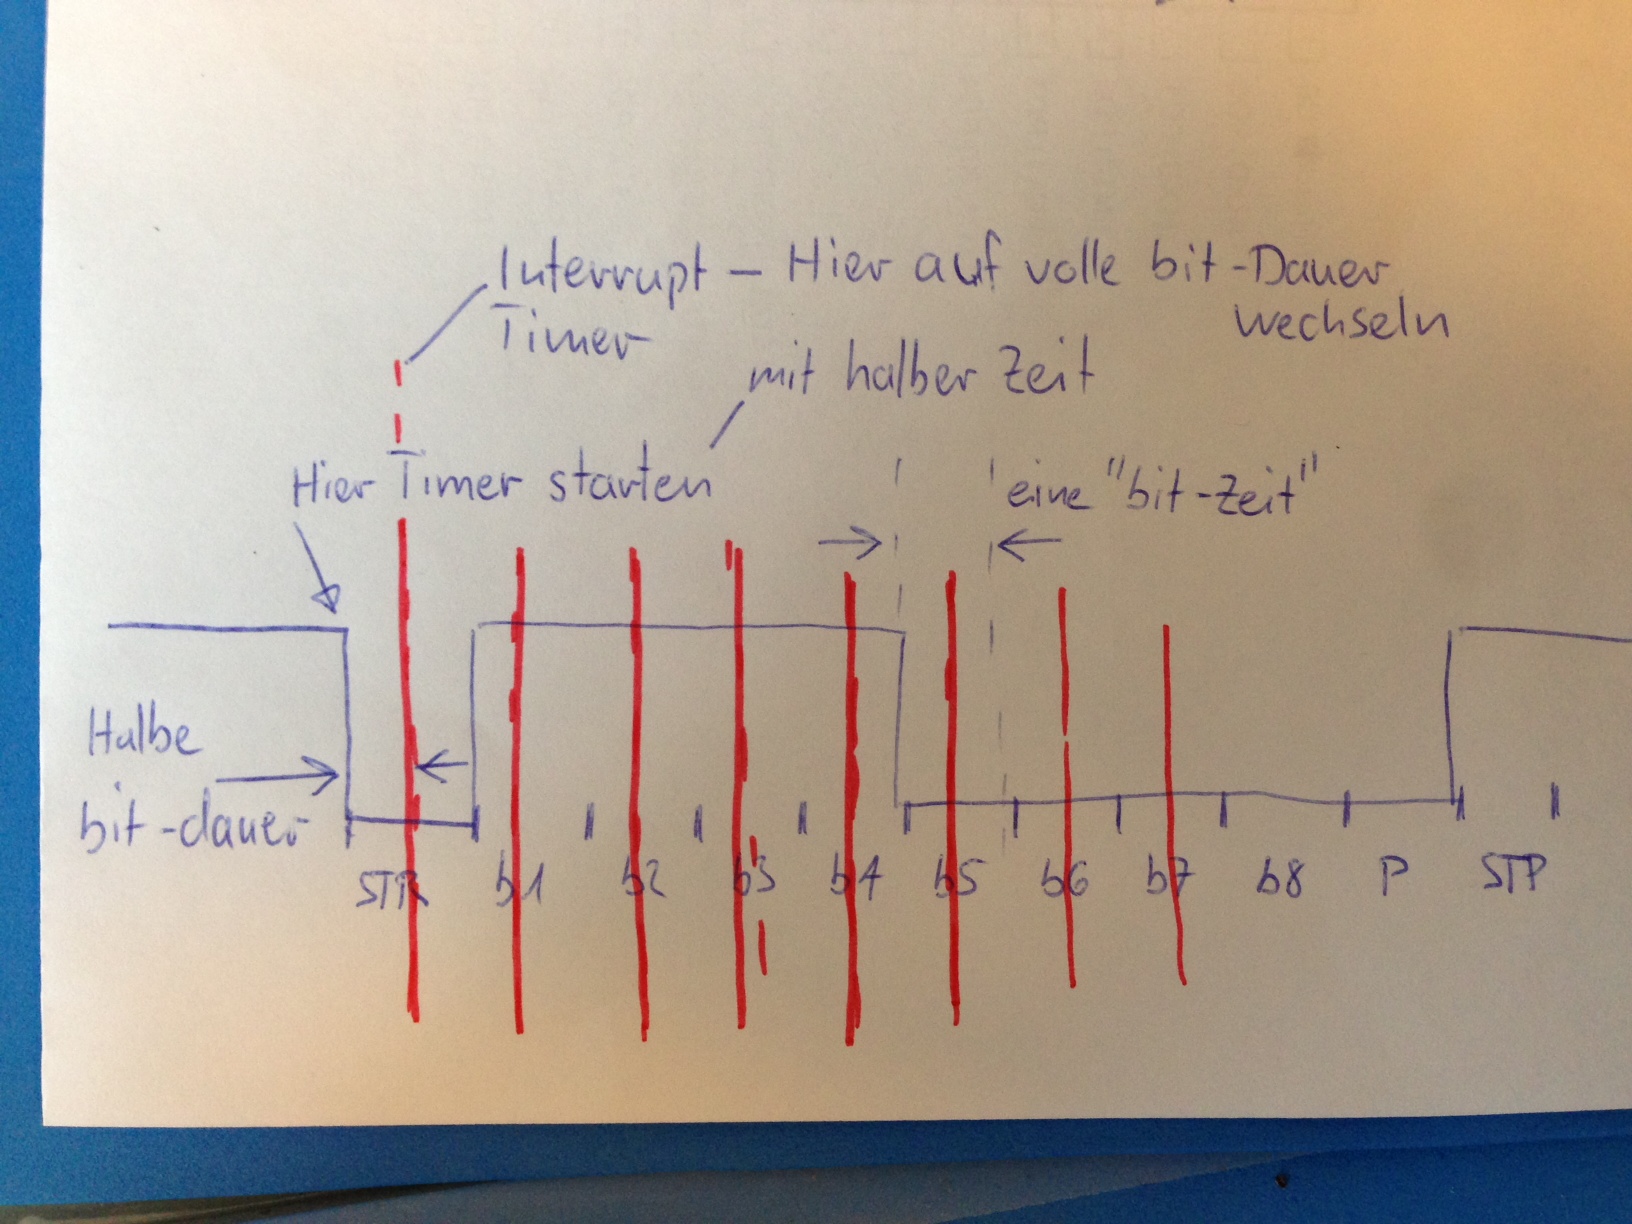 Interrupt – Hier auf volle bit-Dauer
Timer
wechseln
mit halber Zeit
Hier Timer starten
eine "bit-Zeit"
Halbe
bit-dauer
STR b1 b2 b3 b4 b5 b6 b7 b8 P STP